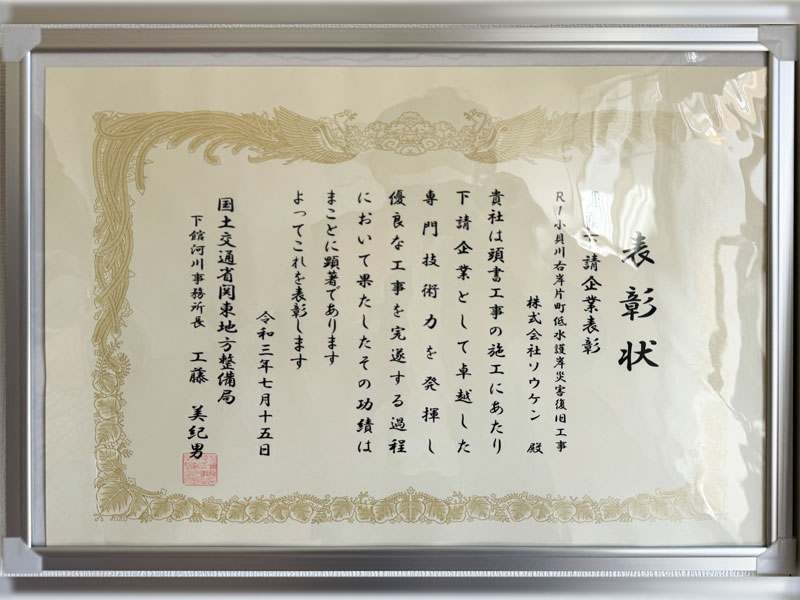 表彰状
下請企業表彰
R1小貝川右岸片町低水護岸災害復旧工事
株式会社ソウケン 殿
貴社は頭書工事の施工にあたり
下請企業として卓越した
専門技術力を発揮し
優良な工事を完遂する過程
において果たしたその功績は
まことに顕著であります
よってこれを表彰します
令和三年七月十五日
国土交通省関東地方整備局
下館河川事務所長 工藤 美紀男